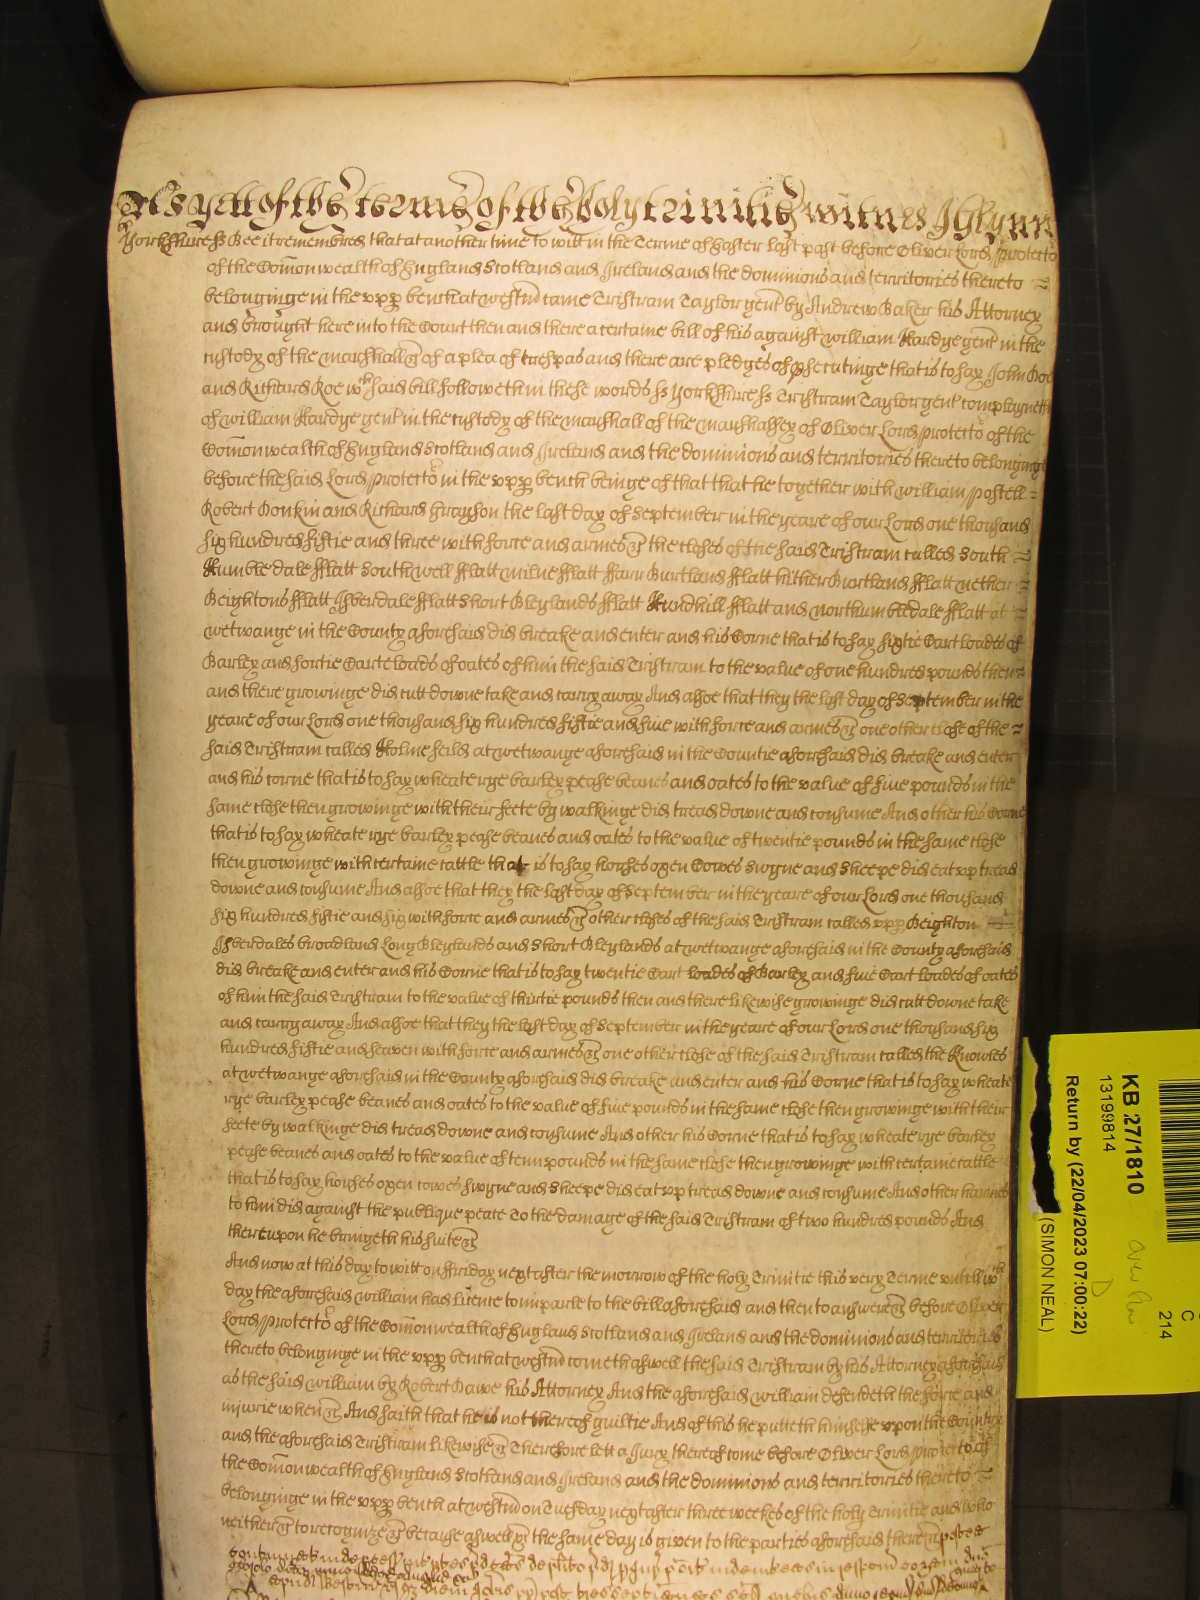 As yett of the terme of the holy trinitie witnes J Glynn
Yorkshire ss Bee it remembred that at another time to witt in the Terme of Easter last past before Oliver Lord Protector
of the Com̄onwealth of England Scotland and Ireland and the dominions and territories thereto
belonginge in the upp bench at westm̄ came Tristram Taylor gent by Andrew Baker his Attorney
and brought here into the Court then and there a certaine bill of his against william Hardye gent in the
custody of the marshall &c of a plea of trespas and there are pledges of p̱secutinge that is to say John Doe
and Richard Roe wch said bill followeth in these words ss Yorkshire ss Tristram Taylor gent complayneth
of william Hardye gent in the custody of the marshall of the marshalsey of Oliver Lord protector of the
Com̄onwealth of England Scotland and Ireland and the dominions and territories thereto belonginge
before the said Lord protector in the upp bench beinge of that that he together with william postell
Robert Donkin and Richard Grayson the last day of September in the yeare of our Lord one thousand
six hundred fiftie and three with force and armes &c the closes of the said Tristram called South
Humble dale fflatt South well fflatt milne fflatt ffarr Burtland fflatt hither Burtland fflatt nether
Beightons fflatt Isberdale fflatt Short Bleylands fflatt Hundhill fflatt and northumbledale fflatt at
wetwange in the County aforesaid did breake and enter and his Corne that is to say sixtie Cart loades of
Barley and fortie Carte loads of oates of him the said Tristram to the value of one hundred pounds then
and there growinge did cutt downe take and carry away And alsoe that they the last day of September in the
yeare of our Lord one thousand six hundred fiftie and five with force and armes &c one other close of the
said Tristram called Holme feild at wetwange aforesaid in the Countie aforesaid did breake and enter
and his corne that is to say wheate rye barley pease beanes and oates to the value of five pounds in the
same close then growinge with their feete by walkinge did tread downe and consume And other his Corne
that is to say wheate rye barley pease beanes and oates to the value of twentie pounds in the same close
then growinge with certaine cattle that is to say horses oxen Cowes swyne and sheepe did eat up tread
downe and consume And alsoe that they the last day of September in the yeare of our Lord one thousand
six hundred fiftie and six with force and armes &c other closes of the said Tristram called upp Beighton
Isberdales broadland Long Bleylands and Short Bleylands at wetwange aforesaid in the County aforesaid
did breake and enter and his Corne that is to say twentie Cart loades of Barley and five Cart loades of oates
of him the said Tristram to the value of thirtie pounds then and there likewise growinge did cutt downe take
and carry away And alsoe that they the last day of September in the yeare of our Lord one thousand six
hundred fiftie and seaven with force and armes &c one other close of the said Tristram called the Knowles
at wetwange aforesaid in the County aforesaid did breake and enter and his Corne that is to say wheate
rye barley pease beanes and oates to the value of five pounds in the same close then growinge with their
feete by walkinge did tread downe and consume And other his Corne that is to say wheate rye barley
pease beanes and oates to the value of tenn pounds in the same close then growinge with certaine cattle
that is to say horses oxen cowes swyne and sheepe did eat up tread downe and consume And other harmes
to him did against the publique peace To the damage of the said Tristram of two hundred pounds And
thereupon he bringeth his suite &c
And now at this day to witt on ffriday next after the morrow of the holy Trinitie this very Terme untill wch
day the aforesaid william had Licence to imparle to the bill aforesaid and then to answere &c before Oliver
Lord protector of the Com̄onwealth of England Scotland and Ireland and the dominions and territories
thereto belonginge in the upp bench at westm̄ cometh aswell the said Tristram by his Attorney aforesaid
as the said william by Robert Dawe his Attorney And the aforesaid william defendeth the force and
iniurie when &c And saith that he is not thereof guiltie And of this he putteth himselfe upon the Country
and the aforesaid Tristram likewise &c Therefore lett a Jury thereof come before Oliver Lord protector of
the Com̄onwealth of England Scotland and Ireland and the dominions and territories thereto
belonginge in the upp bench at westm̄ on Tuesday next after three weekes of the holy Trinitie and who
neither &c to recognize &c because aswell &c the same day is given to the parties aforesaid there &c postea
KB 27/1810
13199814
Return by (22/04/2023 07:00:22)
(SIMON NEAL)
C
214
D